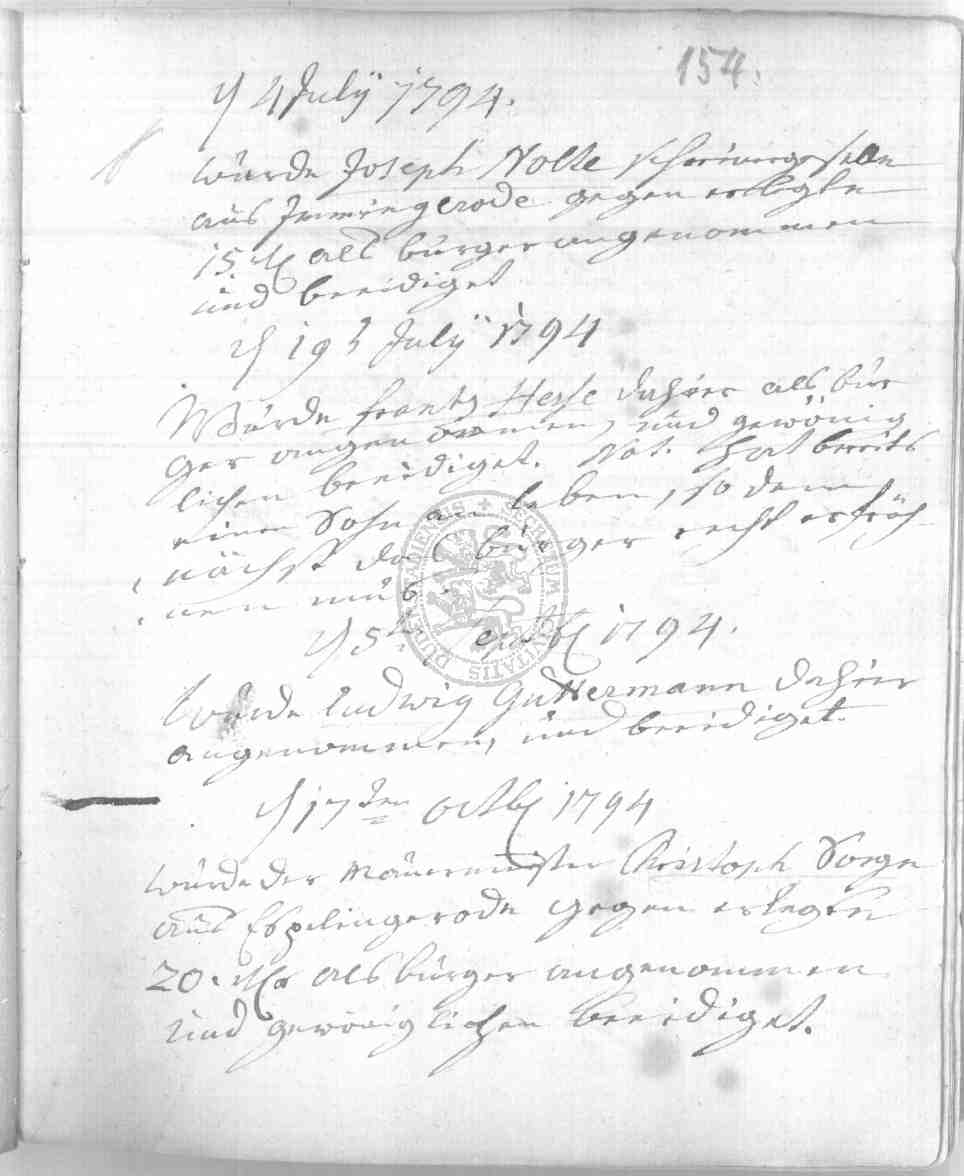 154.
d 4 July 1794.
würde Joseph Nolte schreinergeselle
aus Immingerode gegen erlegte
15 als bürger angenommen
und beeidiget
d 19t July 1794
Würde frantz Hesse dahier als bür
ger angenommen, und gewönig
lichen beeidiget. Not. hat bereits
einen Sohn am leben, so dem
nächst das bürger recht
nen mus
d 5t 1794.
Würde ludwig Guttermann dahier
angenommen, und beeidiget.
d 17ten octb 1794
würde der Mäurermeister Christoph Sorge
aus Esplingerode gegen erlegte
20. als bürger angenommen
und gewöniglichen beeidiget.
SIGILLUM CIVITATIS DUDERSTADIENSIS